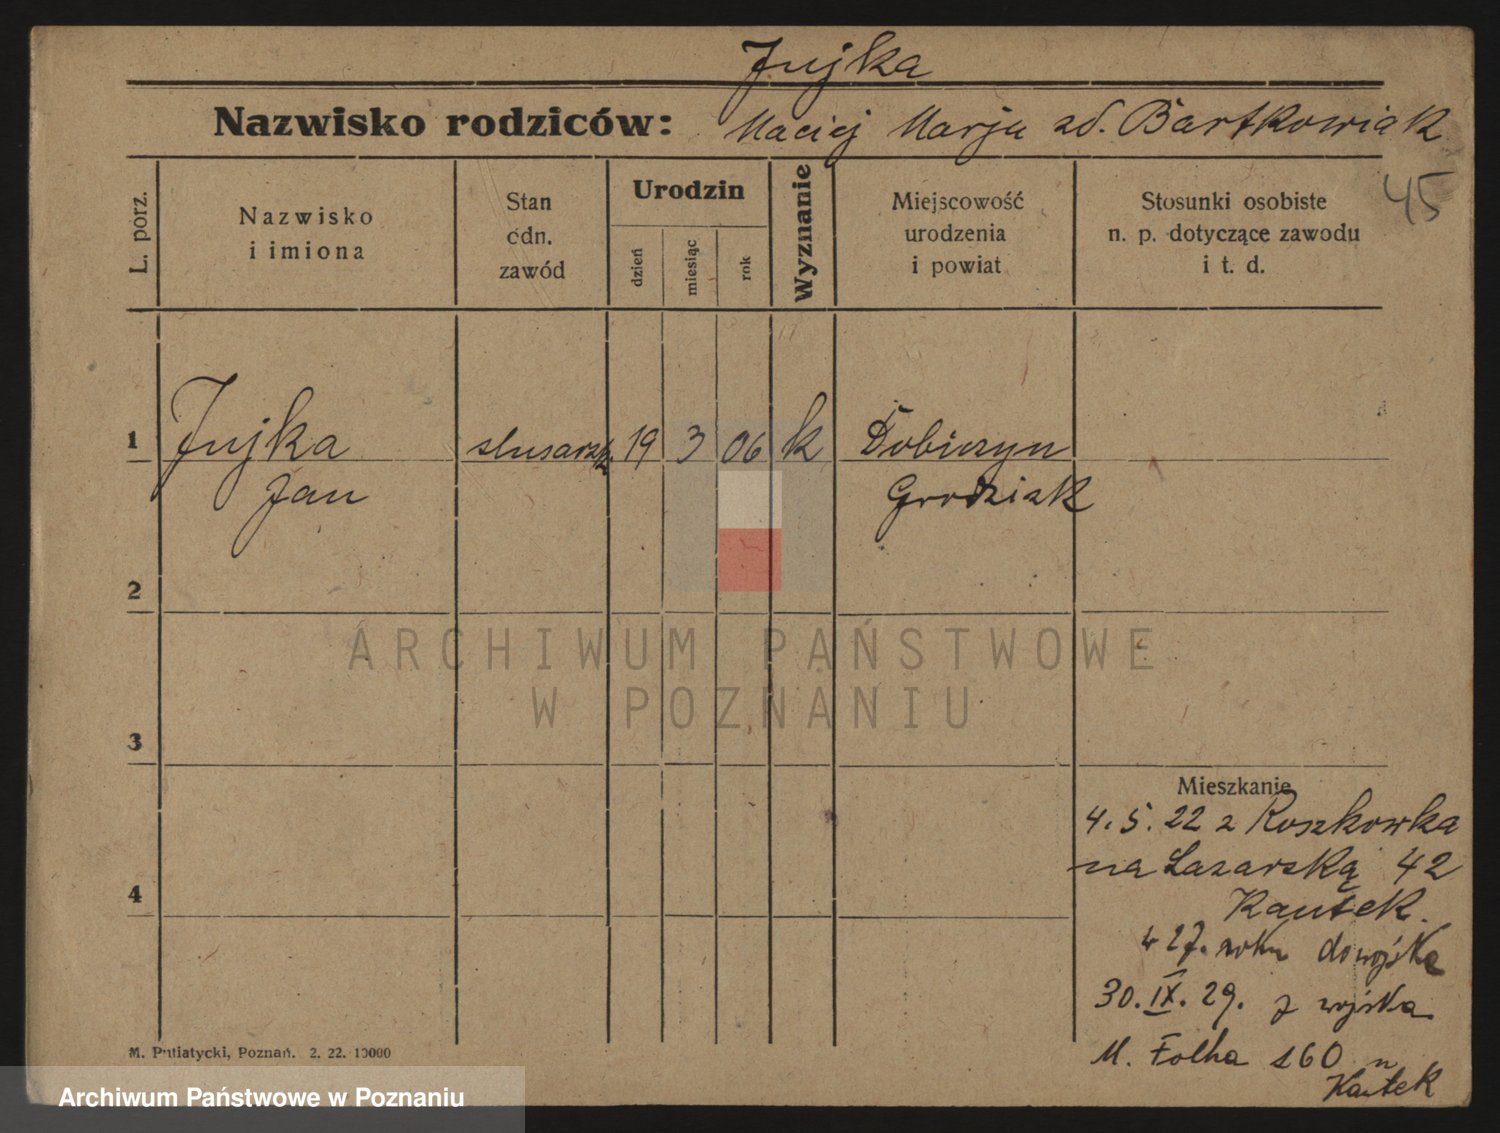 Jujka
Nazwisko rodziców: Maciej Marja zd. Bartkowiak
45
L. porz.
Nazwisko
i imiona
Stan
odn.
zawód
Urodzin
dzień
miesiąc
rok
Wyznanie
Miejscowość
urodzenia
i powiat
Stosunki osobiste
n. p. dotyczące zawodu
i t. d.
1 Jujka slusarz 19 3 06 k Dobieżyn
Jan Grodzisk
2
ARCHIWUM PAŃSTWOWE
W POZNANIU
3
Mieszkanie
4. 5. 22 z Roszkowka
na Łazarską 42
4
Kautek.
w 27. roku do wojska
30. IX. 29. z wojska
M. Focha 160 n
Kautek
M. Putiatycki, Poznań. 2. 22. 10000
Archiwum Państwowe w Poznaniu